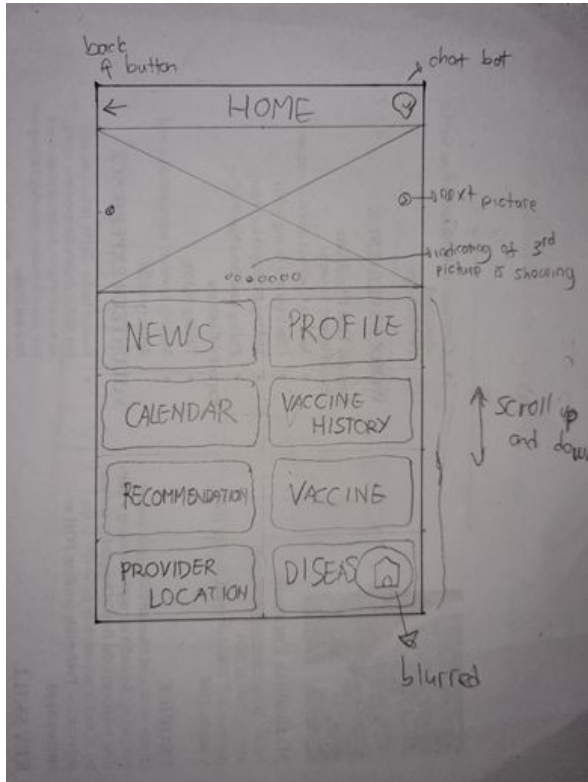 back
button
chat bot
HOME
next picture
indicating of 3rd
picture is showing
NEWS
PROFILE
CALENDAR
VACCINE
HISTORY
scroll up
and down
RECOMMENDATION
VACCINE
PROVIDER
LOCATION
DISEAS
blurred